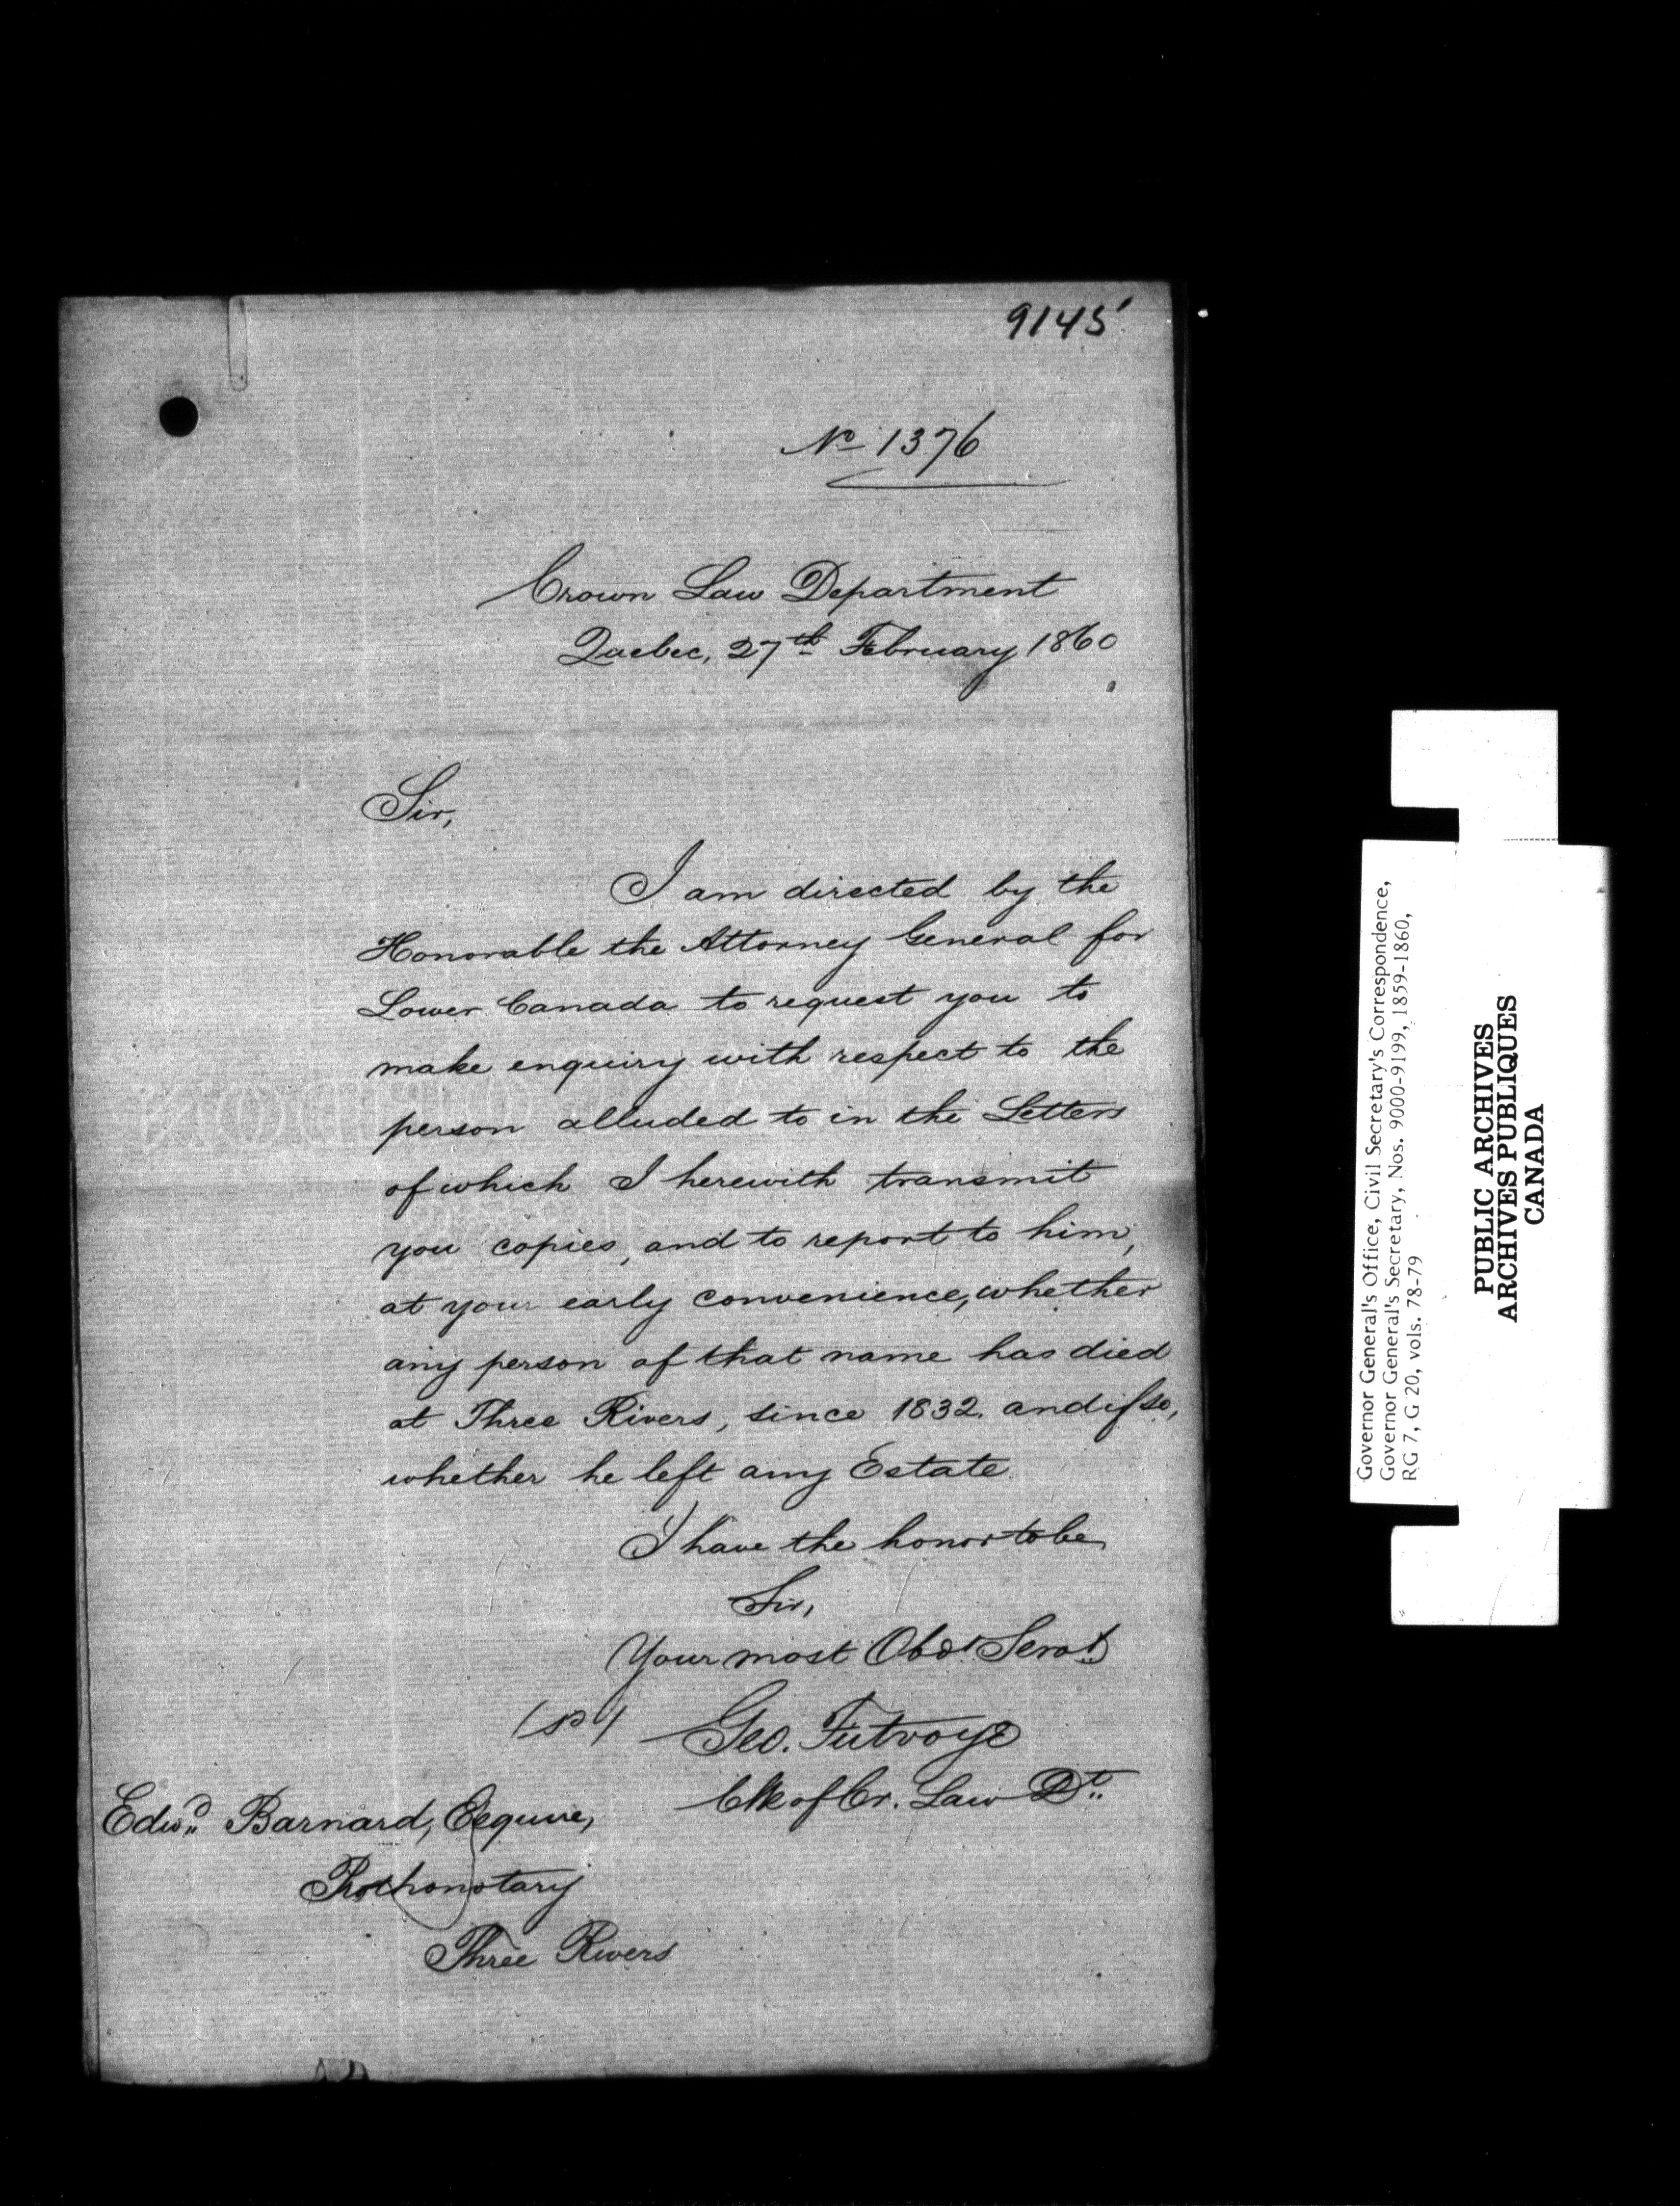 9145
No 1376
Crown Law Department
Quebec, 27th February 1860
Sir,
I am directed by the
Honorable the Attorney General for
Lower Canada to request you to
make enquiry with respect to the
person alluded to in the Letters
of which I herewith transmit
you copies, and to report to him,
at your early convenience, whether
any person of that name has died
at Three Rivers, since 1832, and if so,
whether he left any Estate.
I have the honor to be
Sir,
Your most Obdt Servt
(sd) Geo. Futvoye
Clk of Cr. Law Dt.
Edwd Barnard, Esquire,
Prothonotary
Three Rivers
Governor General's Office, Civil Secretary's Correspondence,
Governor General's Secretary, Nos. 9000-9199, 1859-1860,
RG 7, G 20, vols. 78-79
PUBLIC ARCHIVES
ARCHIVES PUBLIQUES
CANADA